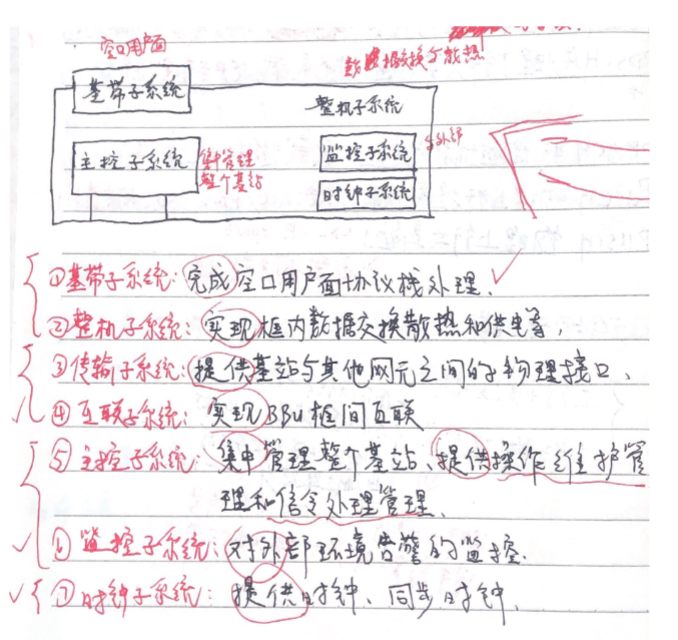 空口用户面
数据交换与散热
基带子系统
整机子系统
主控子系统
集中管理
整个基站
监控子系统
与外部
时钟子系统
①基带子系统:完成空口用户面协议栈处理、
②整机子系统:实现框内数据交换散热和供电等,
③传输子系统:提供基站与其他网元之间的物理接口、
④互联子系统:实现BBU框间互联
⑤主控子系统:集中管理整个基站、提供操作维护管
理和信令处理管理、
⑥监控子系统:对外部环境告警的监控.
⑦时钟子系统:提供时钟、同步时钟,